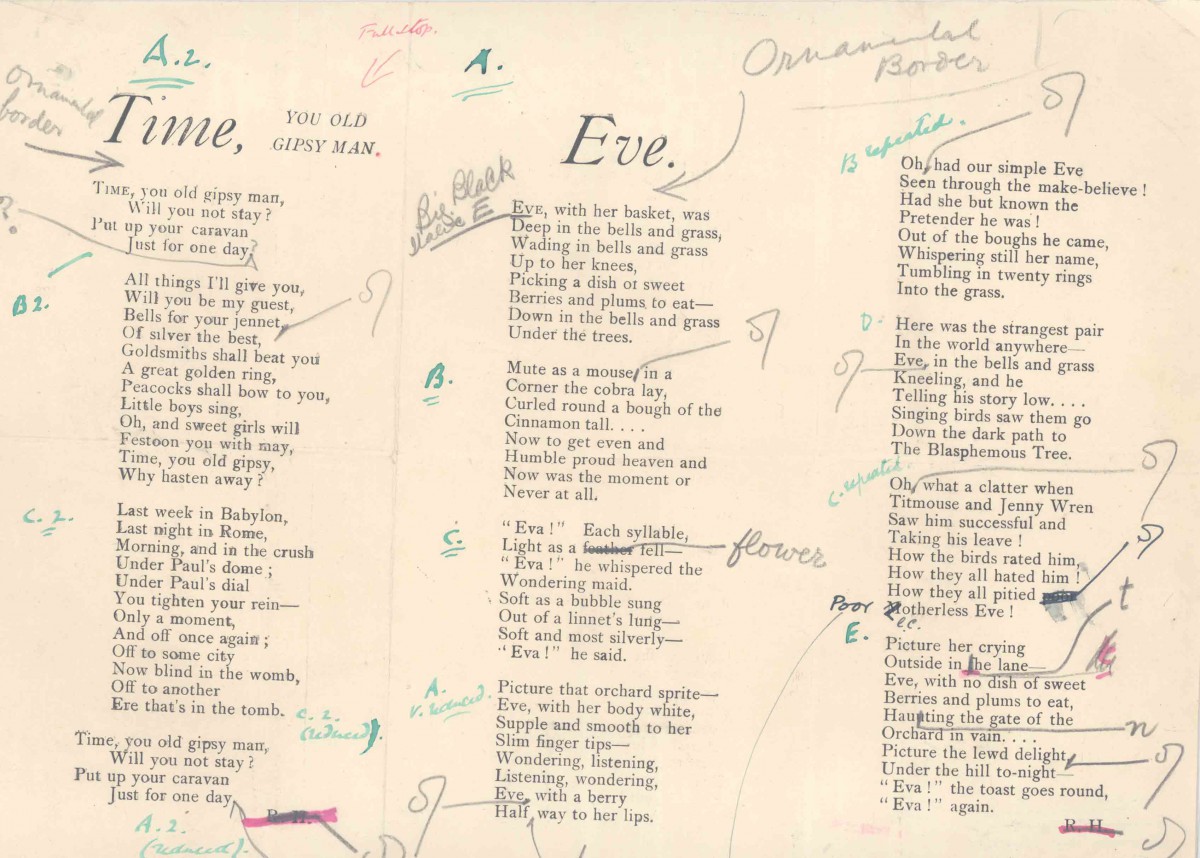 A.2.
Full stop.
Ornamental
border
Time,
YOU OLD
GIPSY MAN.
TIME, you old gipsy man,
Will you not stay?
Put up your caravan
Just for one day?
?
B2.
All things I'll give you,
Will you be my guest,
Bells for your jennet,
Of silver the best,
Goldsmiths shall beat you
A great golden ring,
Peacocks shall bow to you,
Little boys sing,
Oh, and sweet girls will
Festoon you with may,
Time, you old gipsy,
Why hasten away?
C.2.
Last week in Babylon,
Last night in Rome,
Morning, and in the crush
Under Paul's dome;
Under Paul's dial
You tighten your rein—
Only a moment,
And off once again;
Off to some city
Now blind in the womb,
Off to another
Ere that's in the tomb.
C.2.
(reduced).
Time, you old gipsy man,
Will you not stay?
Put up your caravan
Just for one day,
R. H.
A.2.
(reduced).
A.
Ornamental
Border
Eve.
Big Black
Italic E
EVE, with her basket, was
Deep in the bells and grass,
Wading in bells and grass
Up to her knees,
Picking a dish of sweet
Berries and plums to eat—
Down in the bells and grass
Under the trees.
B.
Mute as a mouse, in a
Corner the cobra lay,
Curled round a bough of the
Cinnamon tall. . . .
Now to get even and
Humble proud heaven and
Now was the moment or
Never at all.
C.
"Eva!" Each syllable,
Light as a feather fell—
flower
"Eva!" he whispered the
Wondering maid.
Soft as a bubble sung
Out of a linnet's lung—
Soft and most silverly—
"Eva!" he said.
A.
v. reduced.
Picture that orchard sprite—
Eve, with her body white,
Supple and smooth to her
Slim finger tips—
Wondering, listening,
Listening, wondering,
Eve, with a berry
Half way to her lips.
B repeated.
Oh, had our simple Eve
Seen through the make-believe!
Had she but known the
Pretender he was!
Out of the boughs he came,
Whispering still her name,
Tumbling in twenty rings
Into the grass.
D.
Here was the strangest pair
In the world anywhere—
Eve, in the bells and grass
Kneeling, and he
Telling his story low. . . .
Singing birds saw them go
Down the dark path to
The Blasphemous Tree.
C. repeated.
Oh, what a clatter when
Titmouse and Jenny Wren
Saw him successful and
Taking his leave!
How the birds rated him,
How they all hated him!
How they all pitied
Poor Motherless Eve!
l.c.
E.
Picture her crying
Outside in lhe lane—
t
Eve, with no dish of sweet
Berries and plums to eat,
Hauuting the gate of the
n
Orchard in vain. . . .
Picture the lewd delight,
Under the hill to-night—
"Eva!" the toast goes round,
"Eva!" again.
R. H.